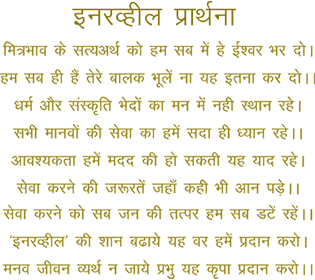 इनरव्हील प्रार्थना
मित्रभाव के सत्यअर्थ को हम सब में हे ईश्वर भर दो।
हम सब ही हैं तेरे बालक भूलें ना यह इतना कर दो।।
धर्म और संस्कृति भेदों का मन में नही स्थान रहे।
सभी मानवों की सेवा का हमें सदा ही ध्यान रहे।।
आवश्यकता हमें मदद की हो सकती यह याद रहे।
सेवा करने की जरूरतें जहाँ कही भी आन पड़े।।
सेवा करने को सब जन की तत्पर हम सब डटें रहें।।
‘इनरव्हील’ की शान बढाये यह वर हमें प्रदान करो।
मनव जीवन व्यर्थ न जाये प्रभु यह कृपा प्रदान करो।।